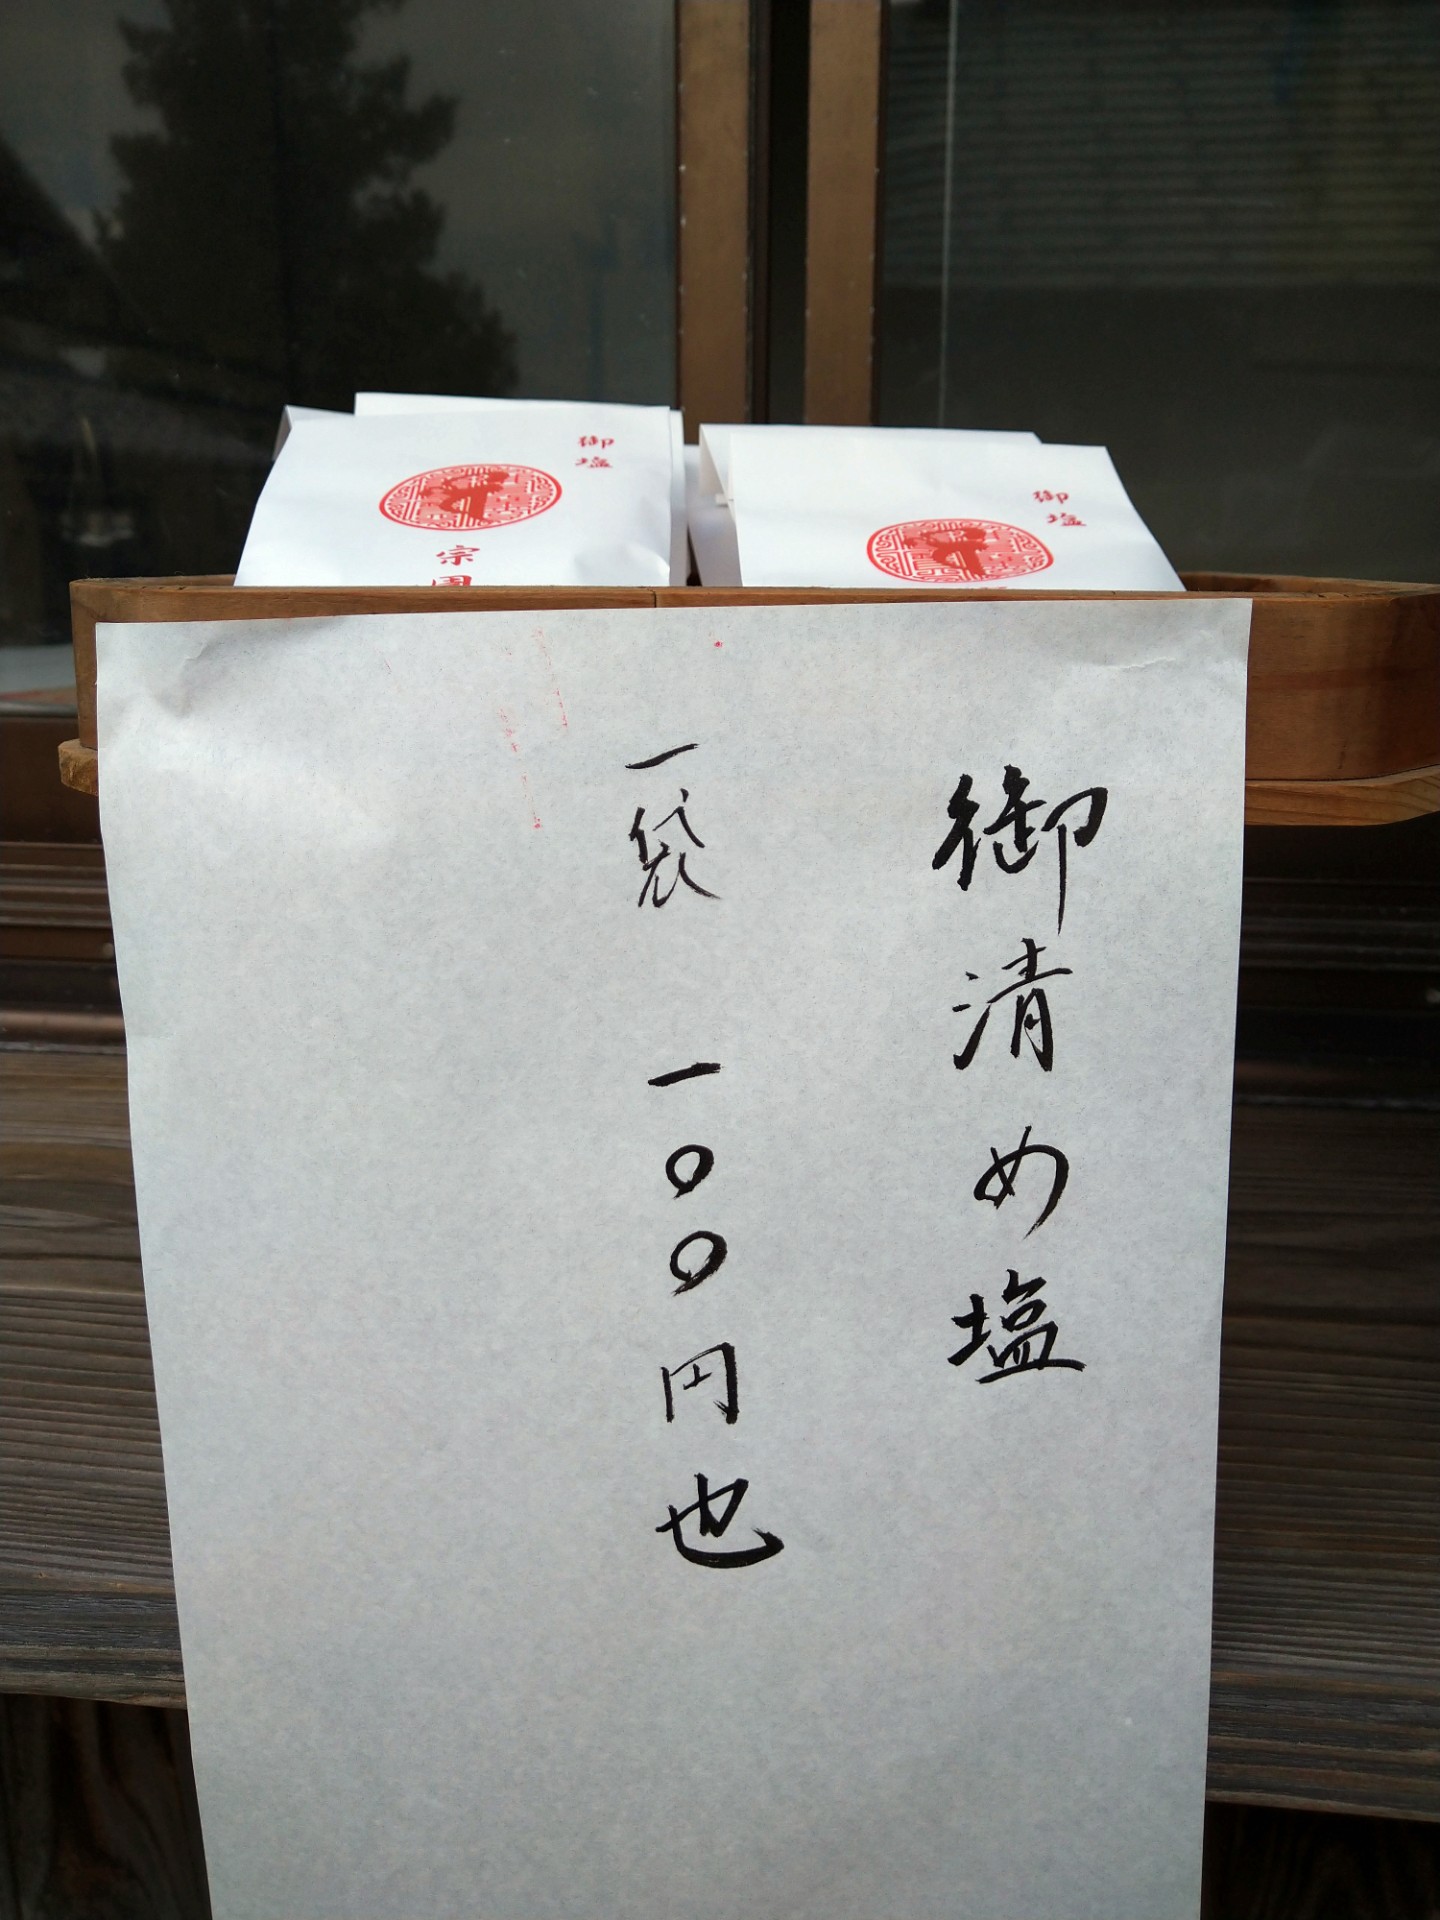 御塩
宗
御塩
御清め塩
一袋 一〇〇円也